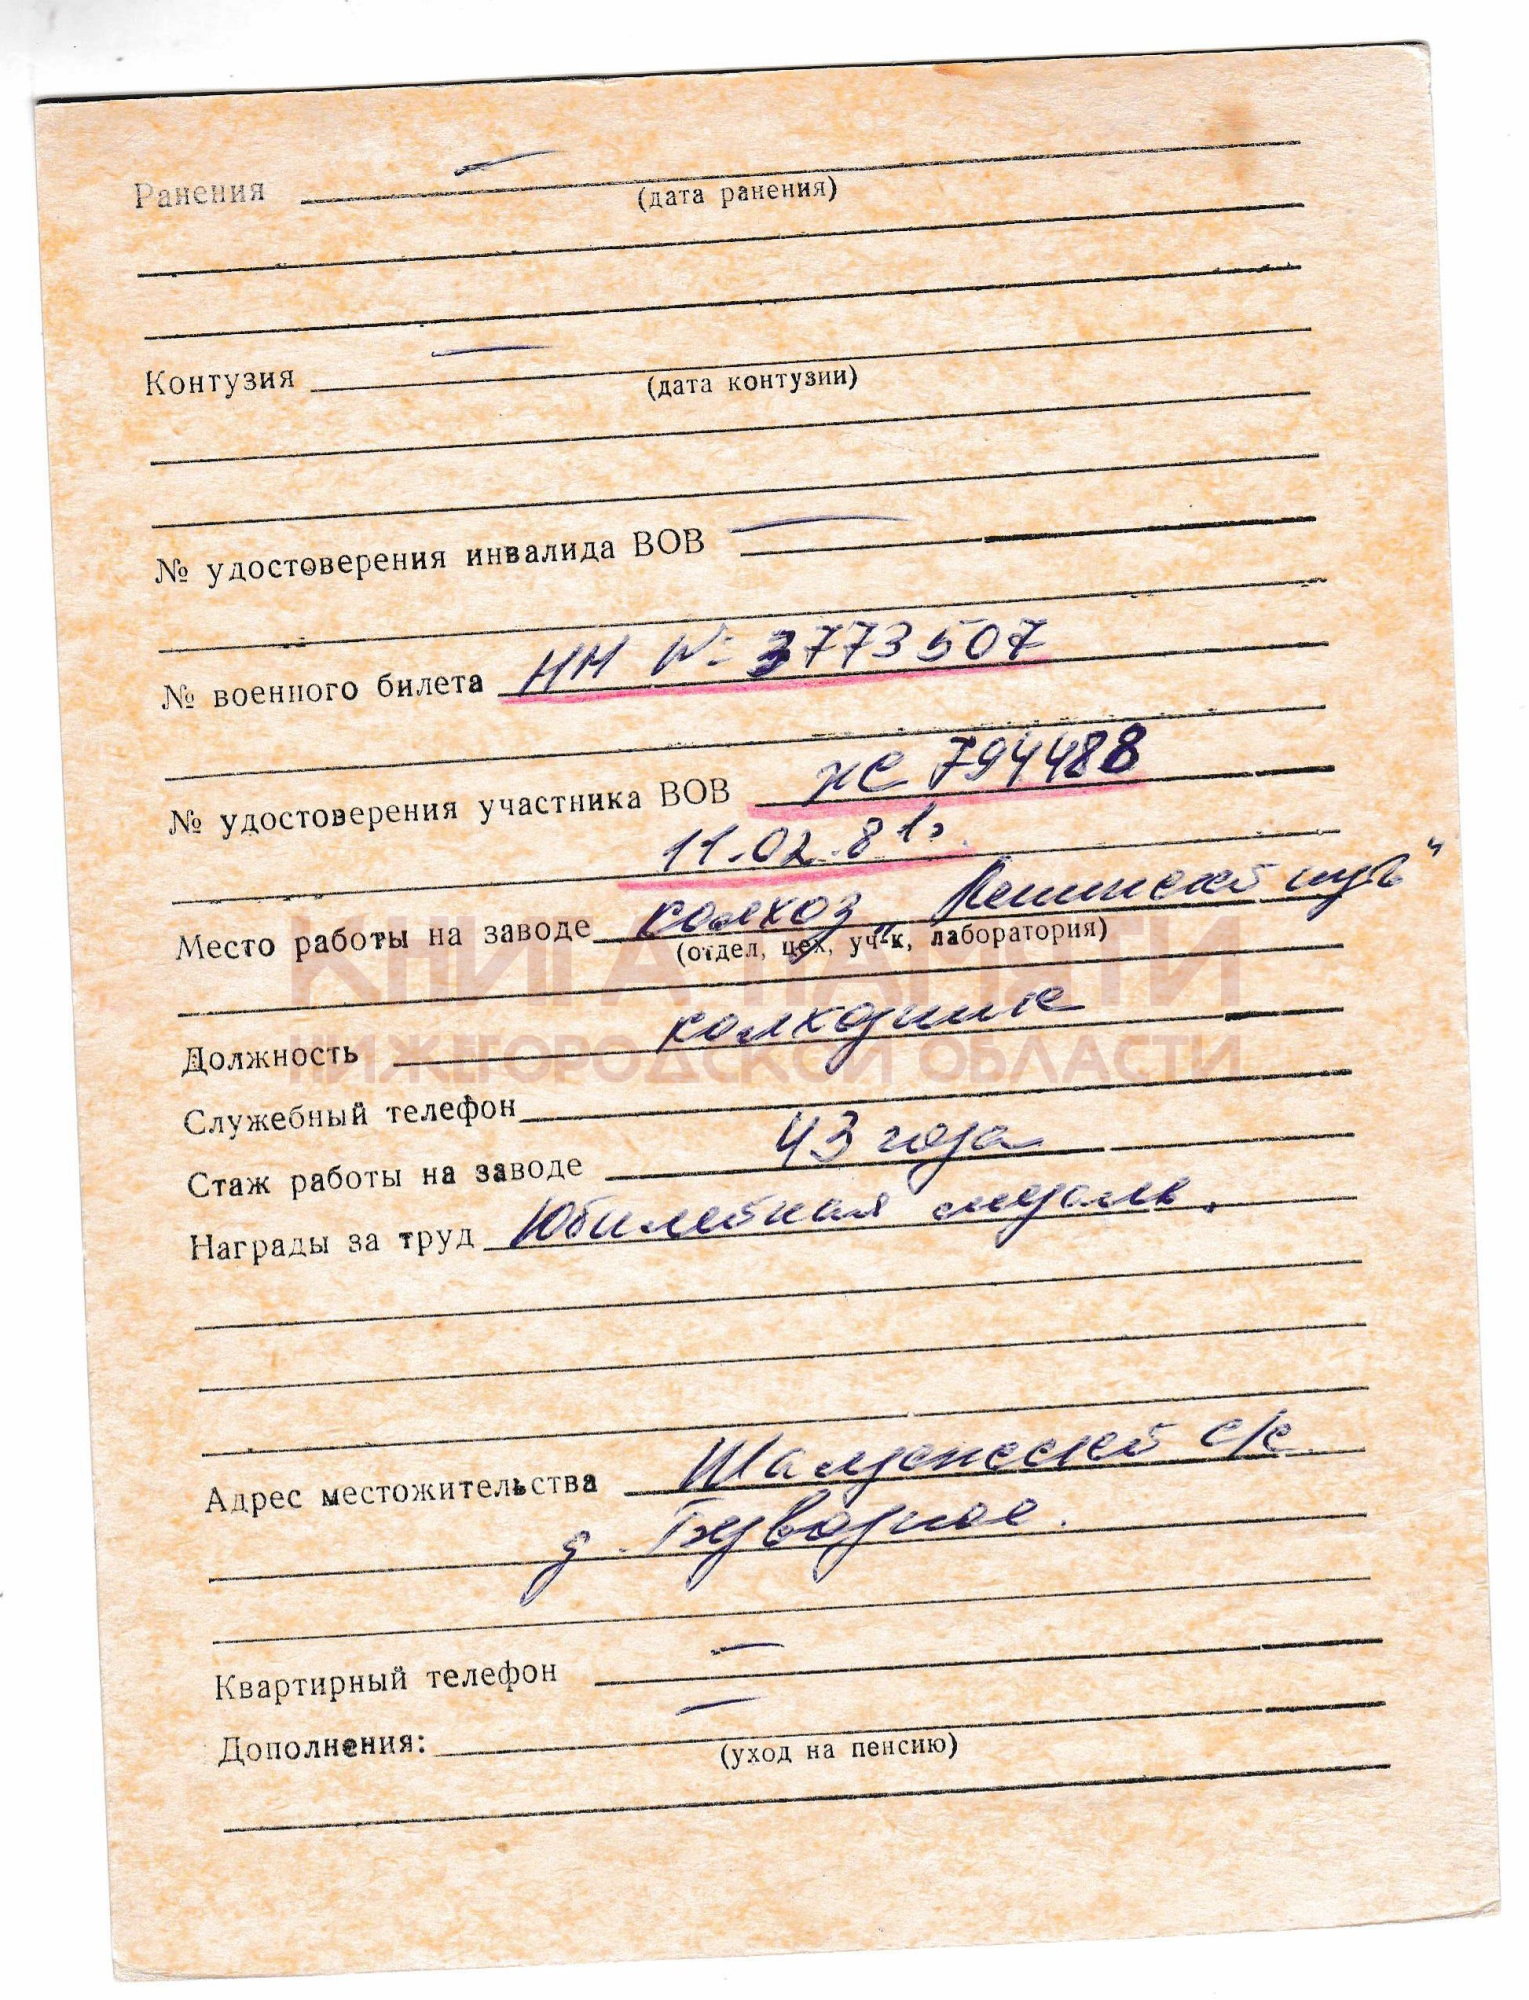 Ранения —
(дата ранения)
Контузия —
(дата контузии)
№ удостоверения инвалида ВОВ —
№ военного билета НМ № 3773507
№ удостоверения участника ВОВ 794488
11.02.81г.
Место работы на заводе колхоз „Ленинский путь“
(отдел, цех, уч-к, лаборатория)
КНИГА ПАМЯТИ
Должность колхозник
НИЖЕГОРОДСКОЙ ОБЛАСТИ
Служебный телефон
Стаж работы на заводе 43 года
Награды за труд Юбилейная медаль.
Адрес местожительства с/с
д. Безводное.
Квартирный телефон —
Дополнения: —
(уход на пенсию)